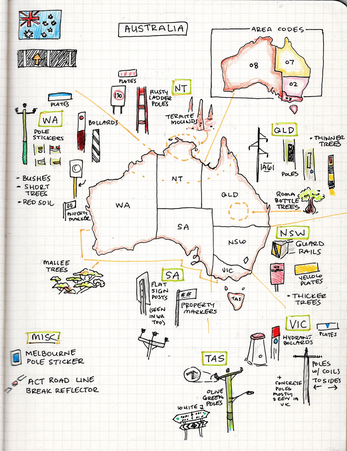 AUSTRALIA
AREA CODES
08
07
02
PLATES
WA
POLE
STICKERS
BOLLARDS
- BUSHES
- SHORT
TREES
- RED SOIL
PROPERTY
MARKER
PLATES
NT
110
RUSTY
LADDER
POLES
TERMITE
MOUNDS
QLD
POLES
- THINNER
TREES
ROMA
BOTTLE
TREES
NT
WA
QLD
SA
NSW
VIC
TAS
NSW
GUARD
RAILS
YELLOW
PLATES
- THICKER
TREES
MALLEE
TREES
SA
FLAT
SIGN
POSTS
(SEEN
IN WA
TOO)
PROPERTY
MARKERS
VIC
PLATES
HYDRANT
BOLLARDS
POLES
W/ COILS
TO SIDES
+
CONCRETE
POLES
MOSTLY
SEEN IN
VIC
MISC
MELBOURNE
POLE STICKER
ACT ROAD LINE
BREAK REFLECTOR
TAS
OLIVE
GREEN
POLES
WHITE